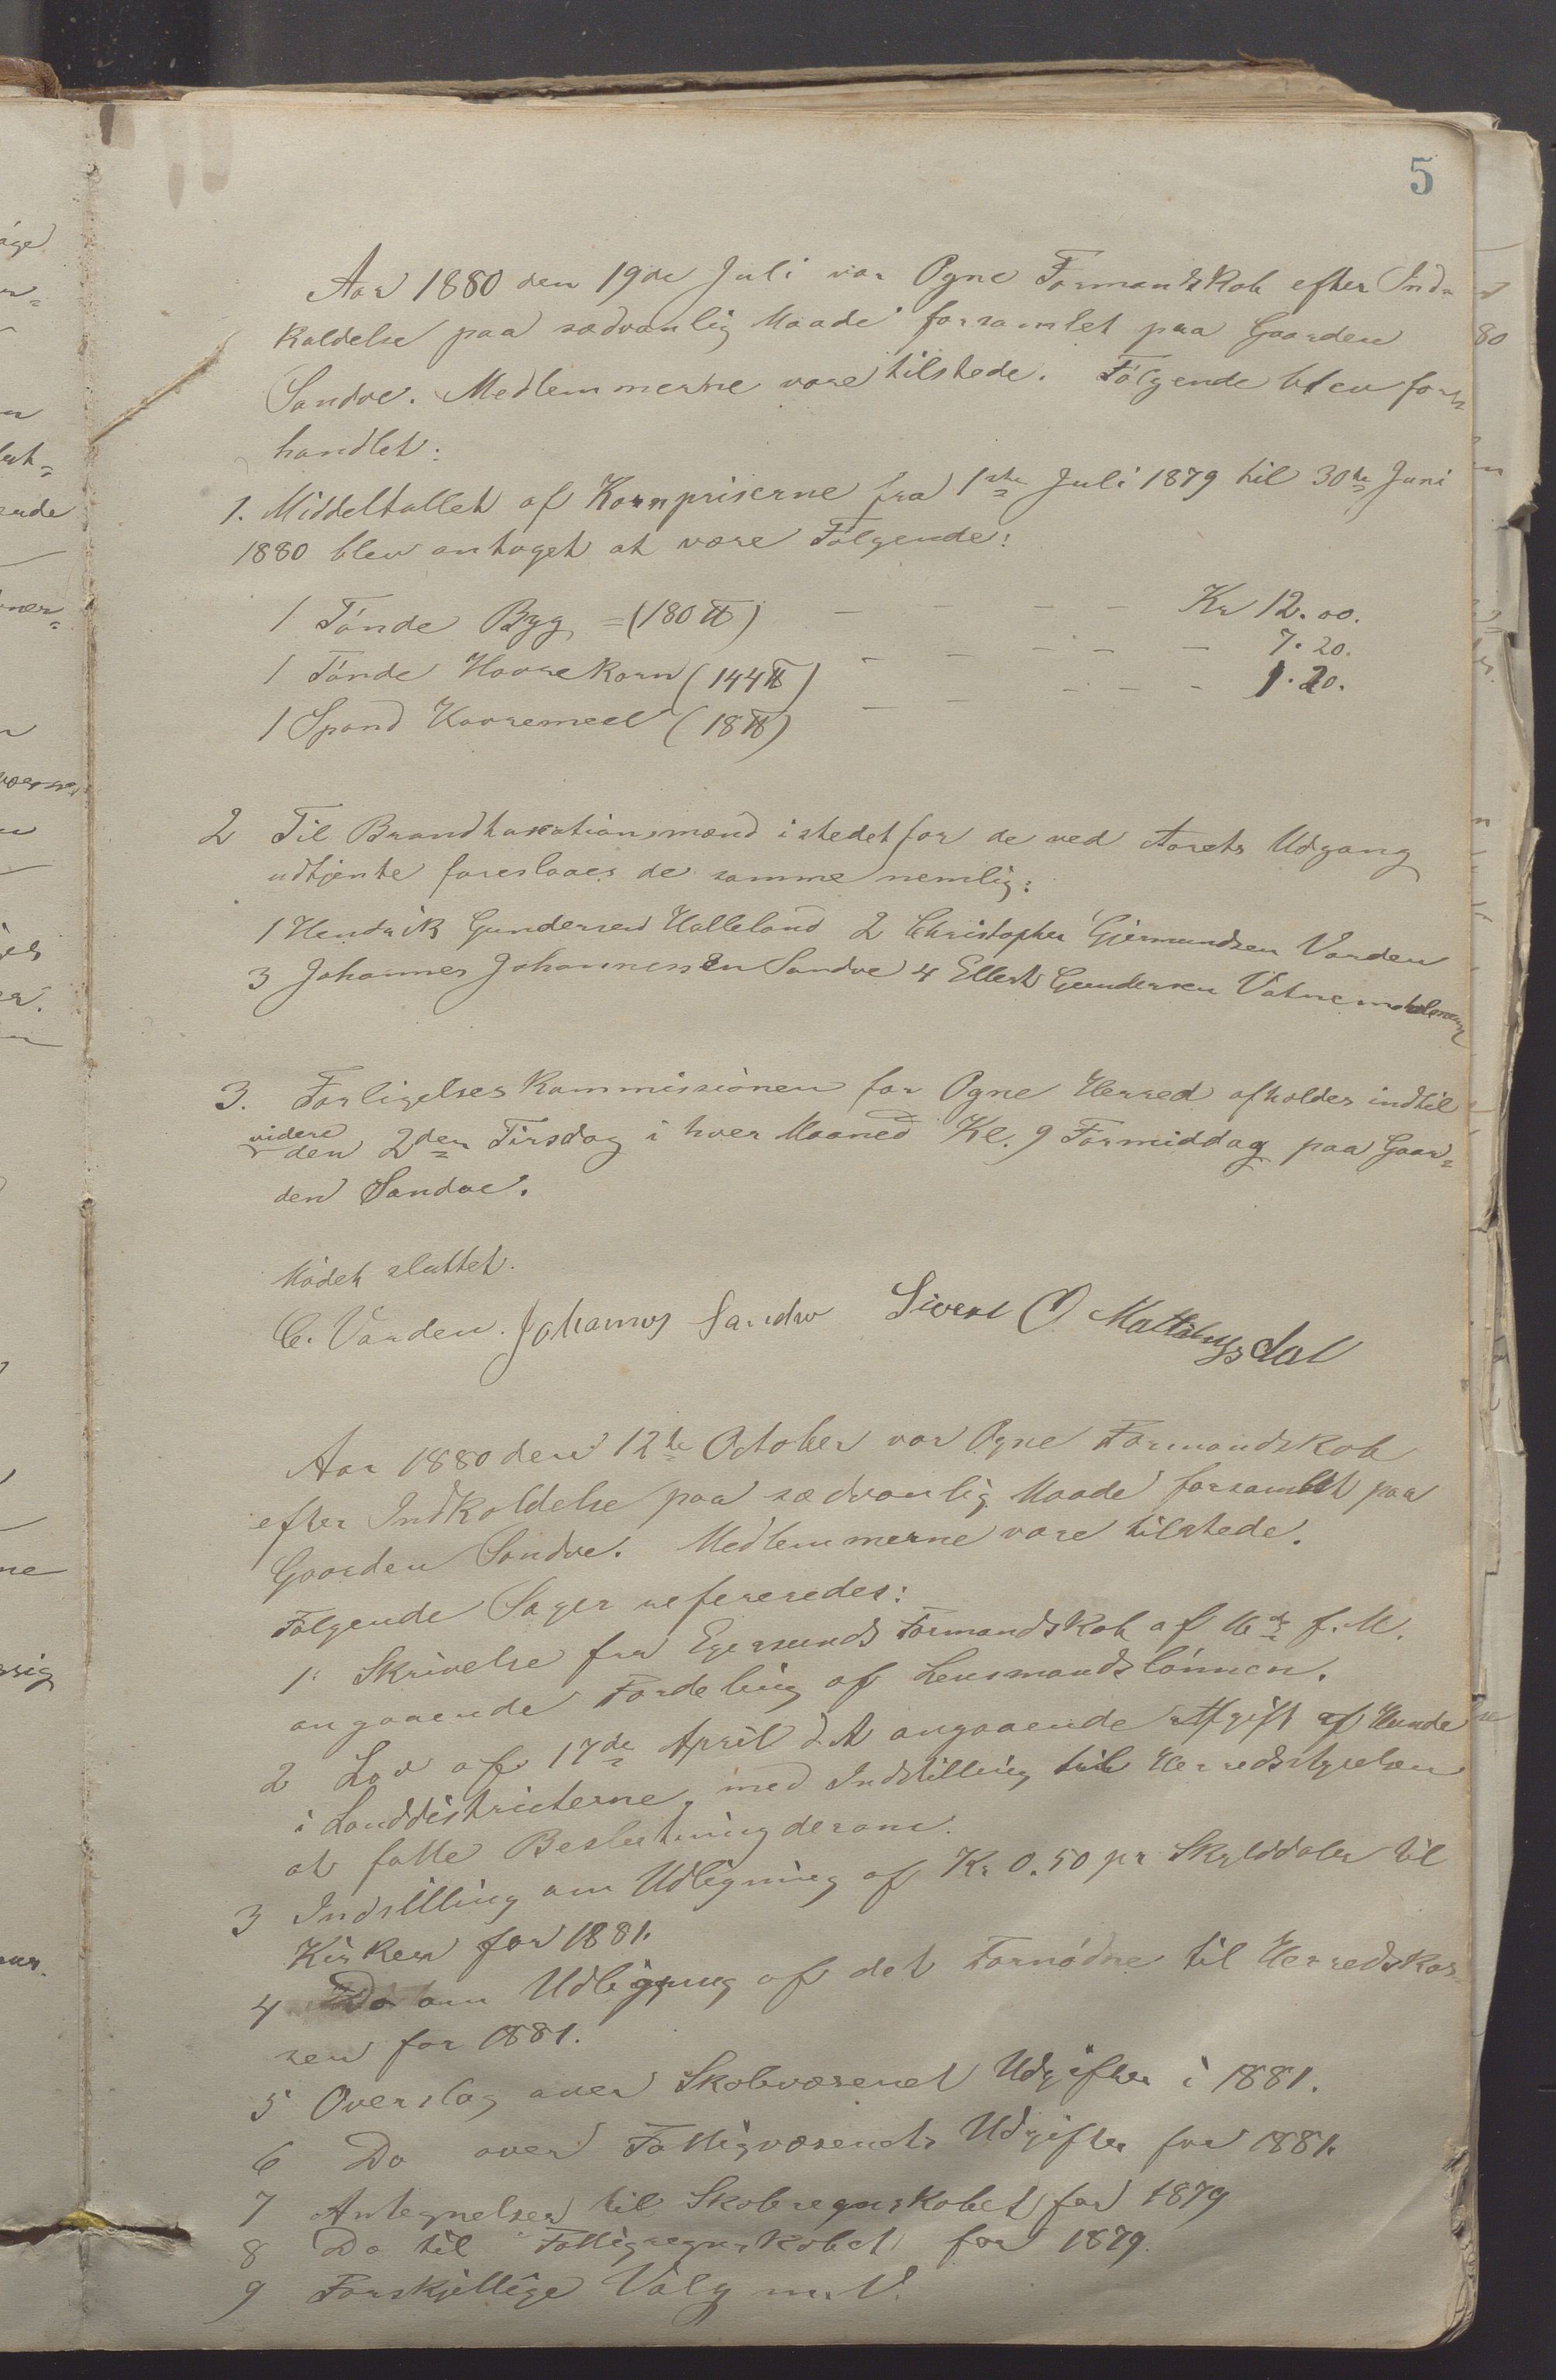 5
Aar 1880 den 19de Juli var Ogne Formandskab efter Ind-
kaldelse paa sædvanlig Maade forsamlet paa Gaarden
Sandve. Medlemmerne vare tilstede. Følgende blev for-
handlet:
1. Middeltallet af Kornpriserne fra 1ste Juli 1879 til 30te Juni
1880 blev antaget at være Følgende:
1 Tønde Byg = (180 ℔) - - - - Kr 12.00.
1 Tønde Havrekorn (144 ℔) - - - - - 7.20.
1 Spand Havremeel (18 ℔) - - - - - 1.20.
2 Til Brandtaxationsmænd istedetfor de ved Aarets Udgang
udtjente foreslaaes de samme nemlig:
1 Hendrik Gundersen Halleland 2 Christopher Gjermundsen Varden
3 Johannes Johannessen Sandve 4 Ellert Gundersen Vatnemo
3. Forligelseskommissionen for Ogne Herred afholdes indtil
videre den 2den Tirsdag i hver Maaned Kl. 9 Formiddag paa Gaar=
den Sandve.
Mødet sluttet.
C. Varden. Johannes Sandve Sivert O Mattingsdal
Aar 1880 den 12te October var Ogne Formandskab
efter Indkaldelse paa sædvanlig Maade forsamlet paa
Gaarden Sandve. Medlemmerne vare tilstede.
Følgende Sager refereredes:
1. Skrivelse fra Egersunds Formandskab af f. M.
angaaende Fordeling af Lensmandslønnen.
2 Lov af 17de April d. A angaaende Afgift af Hunde
i Landdistricterne, med Indstilling til Herredsstyrelsen
at fatte Beslutning derom.
3 Indstilling om Udligning af Kr 0.50 pr Skylddaler til
Kirken for 1881.
4 Do om Udligning af det Fornødne til Herredskas-
sen for 1881.
5 Overslag over Skolevæsenet Udgifter i 1881.
6 Do over Fattigvæsenets Udgifter for 1881.
7 Antegnelser til Skoleregnskabet for 1879
8 Do til Fattigregnskabet for 1879.
9 Forskjellige Valg m. V.